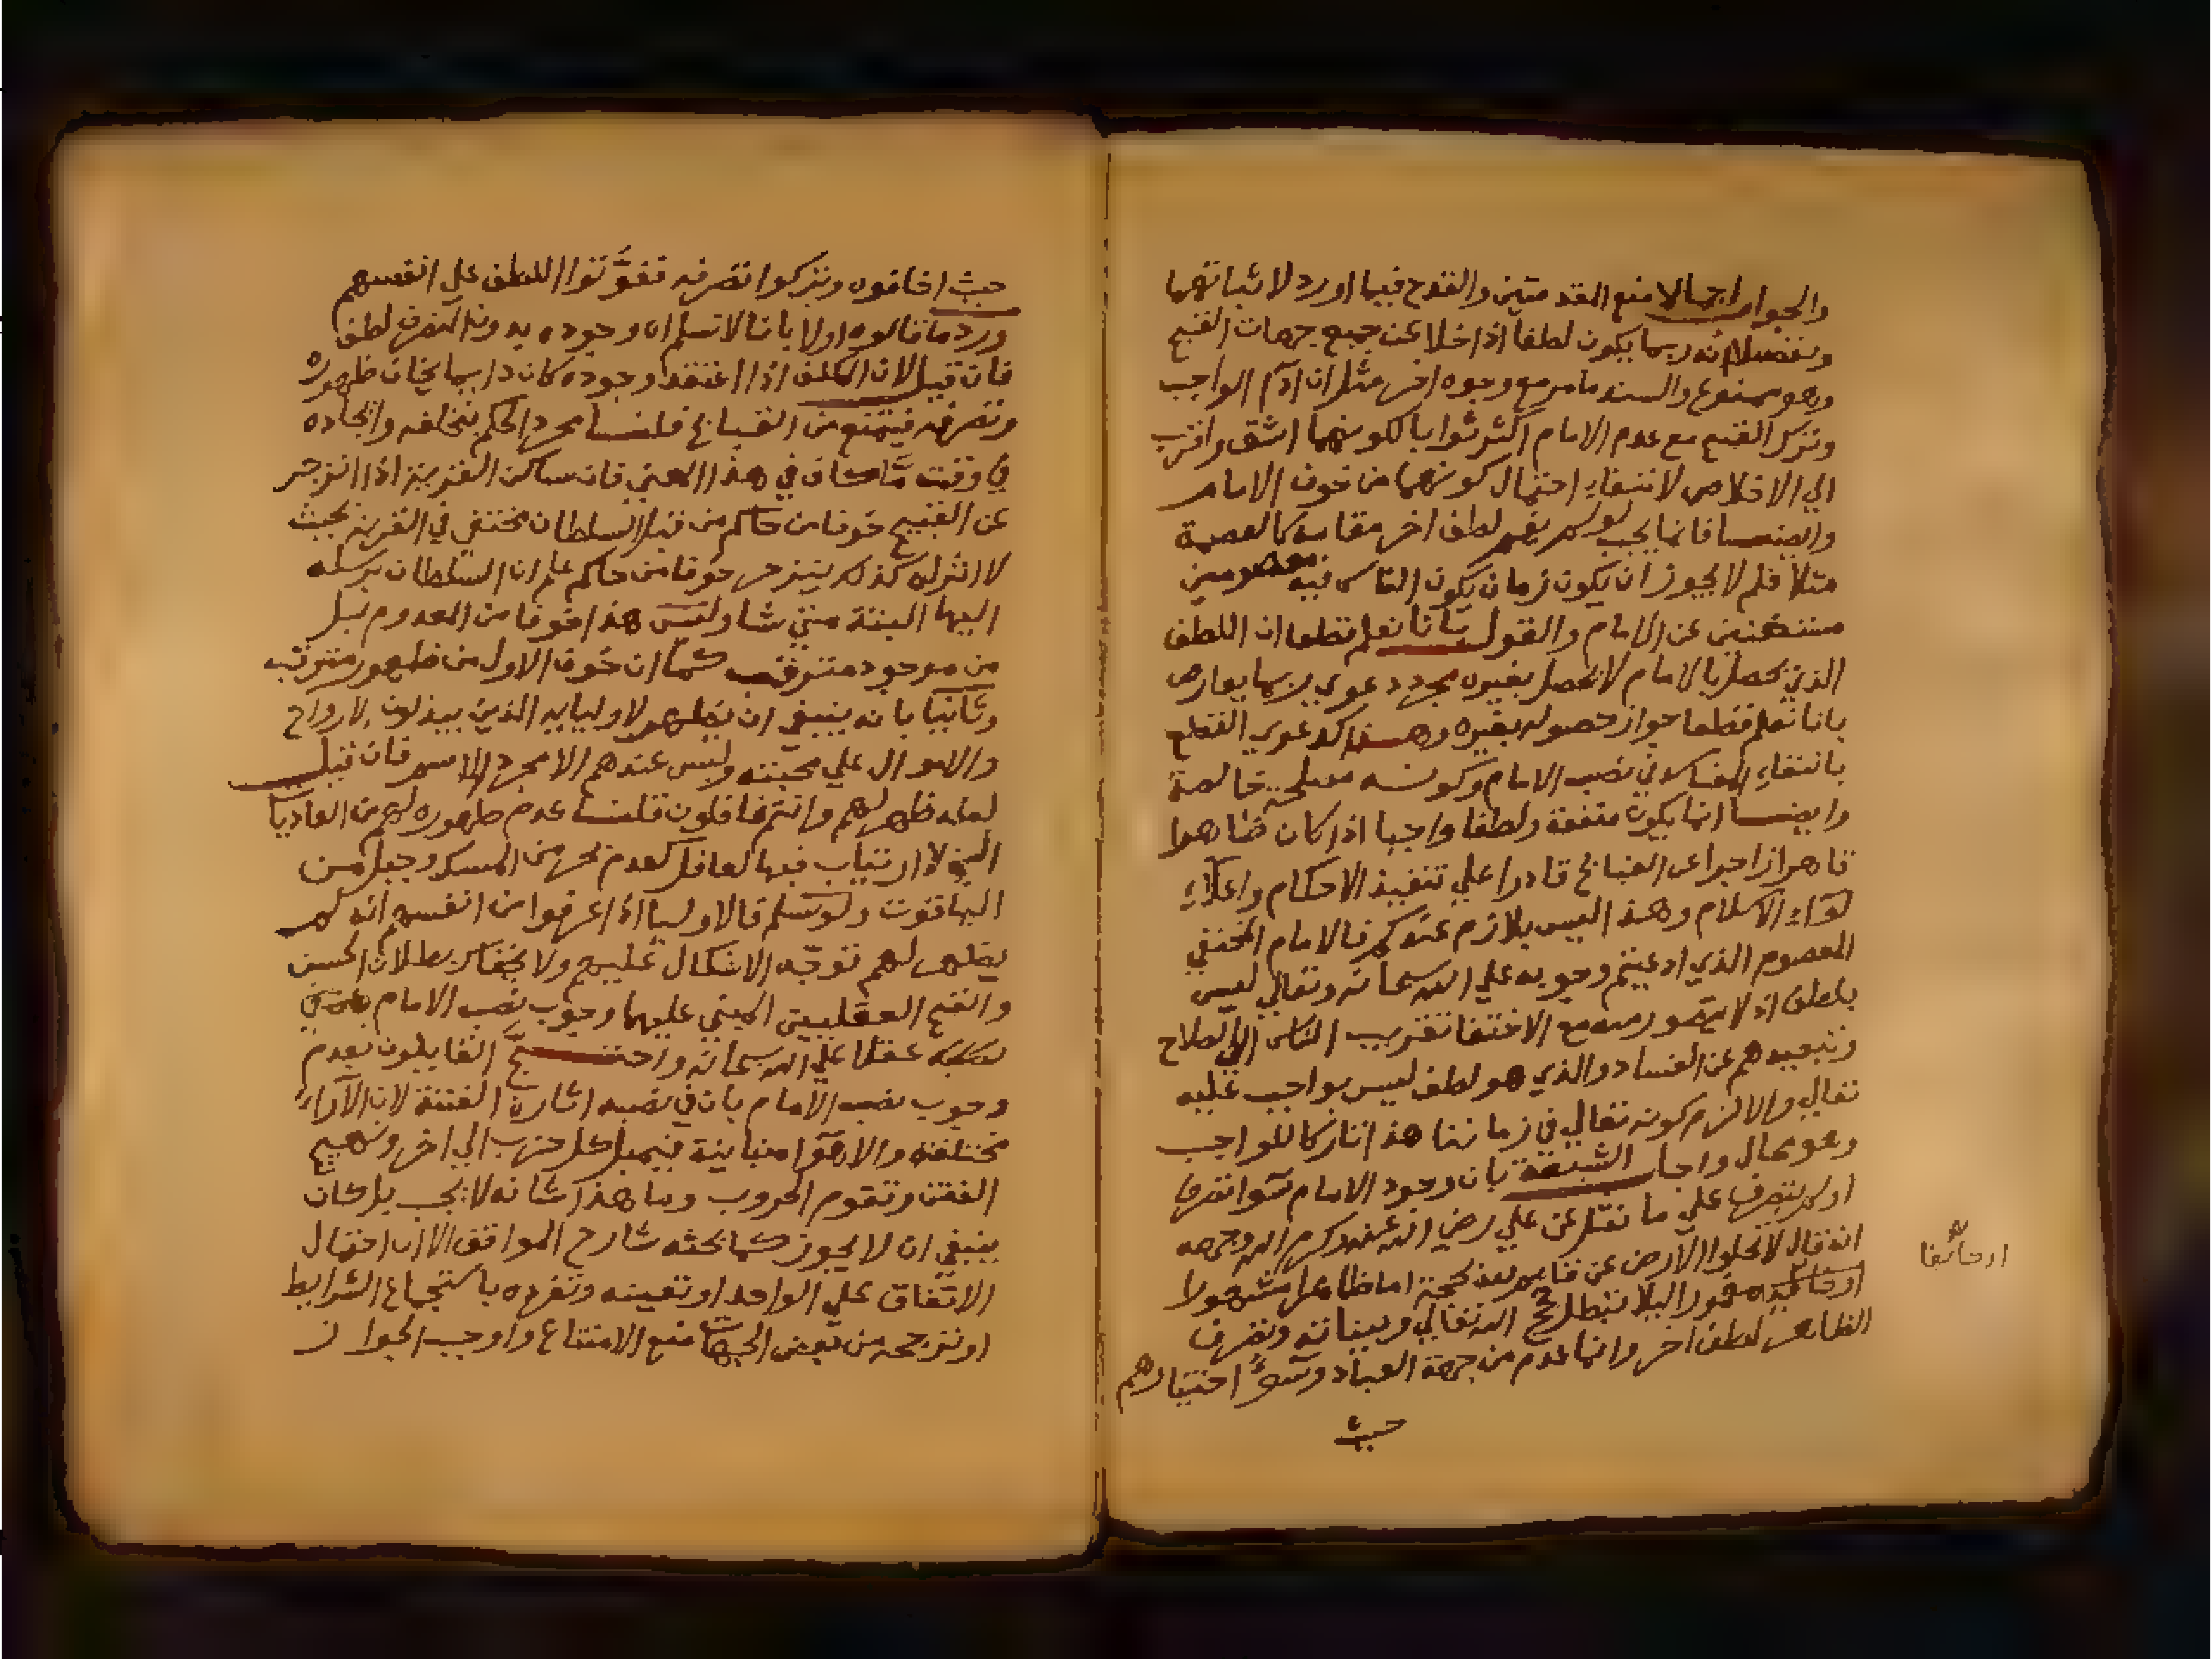 والجواب اجمالا منع المقدمتين والقدح فيما اورد لاثباتهما
وتفصيلا انه ربما يكون لطفا اذا خلا عن جميع جهات القبح
وهو ممنوع والسند ما مر مع وجوه اخر مثل ان اداء الواجب
وترك القبيح مع عدم الامام اكثر ثوابا لكونهما اشق واقرب
الي الاخلاص لانتفاء احتمال كونهما من خوف الامام
وايضا فانما يجب لو لم يقم لطف اخر مقامه كالعصمة
مثلا فلم لا يجوز ان يكون زمان يكون الناس فيه معصومين
مستغنين عن الامام والقول بانا نعلم قطعا ان اللطف
الذي يحصل بالامام لا يحصل بغيره مجرد دعوي ربما يعارض
بانا نعلم قطعا جواز حصوله بغيره وهذا كدعوي القطع
بانتفاء المفاسد في نصب الامام وكونه مصلحة خالصة
وايضا انما يكون منفعة ولطفا واجبا اذا كان ظاهرا
قاهرا زاجرا عن القبائح قادرا علي تنفيذ الاحكام واعلاء
لواء الاسلام وهذا ليس بلازم عندكم فالامام المختفي
المعصوم الذي ادعيتم وجوبه علي الله سبحانه وتعالي ليس
بلطف اذ لا يتصور منه مع الاختفا تقريب الناس الي الصلاح
وتبعيدهم عن الفساد والذي هو لطف ليس بواجب عليه
تعالي والا لزم كونه تعالي في زماننا هذا تاركا للواجب
وهو محال واجاب الشيعة بان وجود الامام سوا تصرف
او لم يتصرف علي ما نقل عن علي رضي الله عنه وكرم الله وجهه
انه قال لا تخلوا الارض عن قايم لله بحجة اما ظاهرا مشهورا
او خائفا مغمورا ليلا تبطل حجج الله تعالي وبيناته وتصرف
او خائفا
الظاهر لطف اخر وانما عدم من جهة العباد وسوء اختيارهم
حيث
حيث اخافوه وتركوا نصرته ففوتوا اللطف علي انفسهم
ورد ما قالوه اولا بانا لا نسلم ان وجوده بدون التصرف لطف
فان قيل لان المكلف اذا اعتقد وجوده كان دايما يخاف ظهوره
وتصرفه فيمتنع من القبائح قلنا مجرد الحكم بتخلفه وايجاده
في وقت ما كاف في هذا المعني فان ساكن القرية اذا انزجر
عن القبيح خوفا من حاكم من قبل السلطان مختفي في القرية بحيث
لا اثر له كذلك ينزجر خوفا من حاكم علم ان السلطان يرسله
اليها البتة متي شا وليس هذا خوفا من المعدوم بل
من موجود مترقب كما ان خوف الاول من ظهور مترقب
وثانيا بانه ينبغي ان يظهر لاوليايه الذين يبذلون الارواح
والاموال علي محبته وليس عندهم الا مجرد الاسم فان قيل
لعله ظهر لهم وانتم غافلون قلنا عدم ظهوره لهم من العاديات
التي لا ارتياب فيها لعاقل كعدم بحر من المسك وجبل من
الياقوت ولو سلم فالاوليا اذا عرفوا من انفسهم انه لم
يظهر لهم توجه الاشكال عليهم ولا يخفاك بطلان الحسن
والقبح العقليين المبني عليهما وجوب نصب الامام
عقلا علي الله سبحانه واحتج القايلون بعدم
وجوب نصب الامام بان في نصبه اثارة الفتنة لان الآراء
مختلفة والاهوا متباينة فيميل كل حزب الي اخر وتهيج
الفتن وتقوم الحروب وما هذا شانه لا يجب بل كان
ينبغي ان لا يجوز كما بحثه شارح المواقف الا ان احتمال
الاتفاق علي الواحد او تعينه وتفرده باستجماع الشرايط
او ترجحه من بعض الجهات منع الامتناع واوجب الجواز